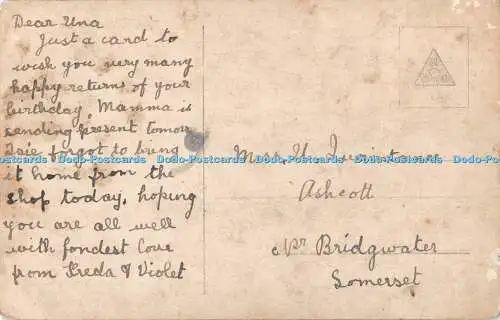 Dear Una
Just a card to
wish you very many
happy returns of your
birthday, Mamma is
sending present tomorr
Isie forgot to bring
it home from the
shop today, hoping
you are all well
with fondest love
from Freda & Violet
Miss U.
Ashcott
Nr Bridgwater
Somerset
Dodo-Postcards Dodo-Postcards Dodo-Postcards Dodo-Postcards